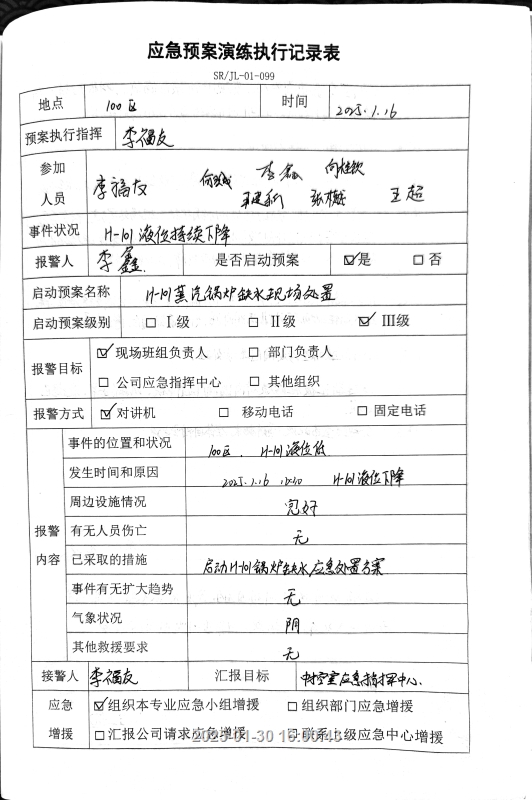 应急预案演练执行记录表
SR/JL-01-099
地点 100区 时间 2025.1.16
预案执行指挥 李福友
参加人员 李福友 李鑫 王建新 王超
事件状况 H-101液位持续下降
报警人 李鑫. 是否启动预案 ☑是 □否
启动预案名称 H-101蒸汽锅炉缺水现场处置
启动预案级别 □Ⅰ级 □Ⅱ级 ☑Ⅲ级
报警目标 ☑现场班组负责人 □部门负责人
□公司应急指挥中心 □其他组织
报警方式 ☑对讲机 □移动电话 □固定电话
报警内容
事件的位置和状况 100区. H-101液位低
发生时间和原因 2025.1.16 H-101液位下降
周边设施情况 完好
有无人员伤亡 无
已采取的措施 启动H-101锅炉缺水应急处置方案
事件有无扩大趋势 无
气象状况 阴
其他救援要求 无
接警人 李福友 汇报目标 中控室应急指挥中心.
应急增援 ☑组织本专业应急小组增援 □组织部门应急增援
□汇报公司请求应急增援 □联系上级应急中心增援
2025-01-30 16:00:43